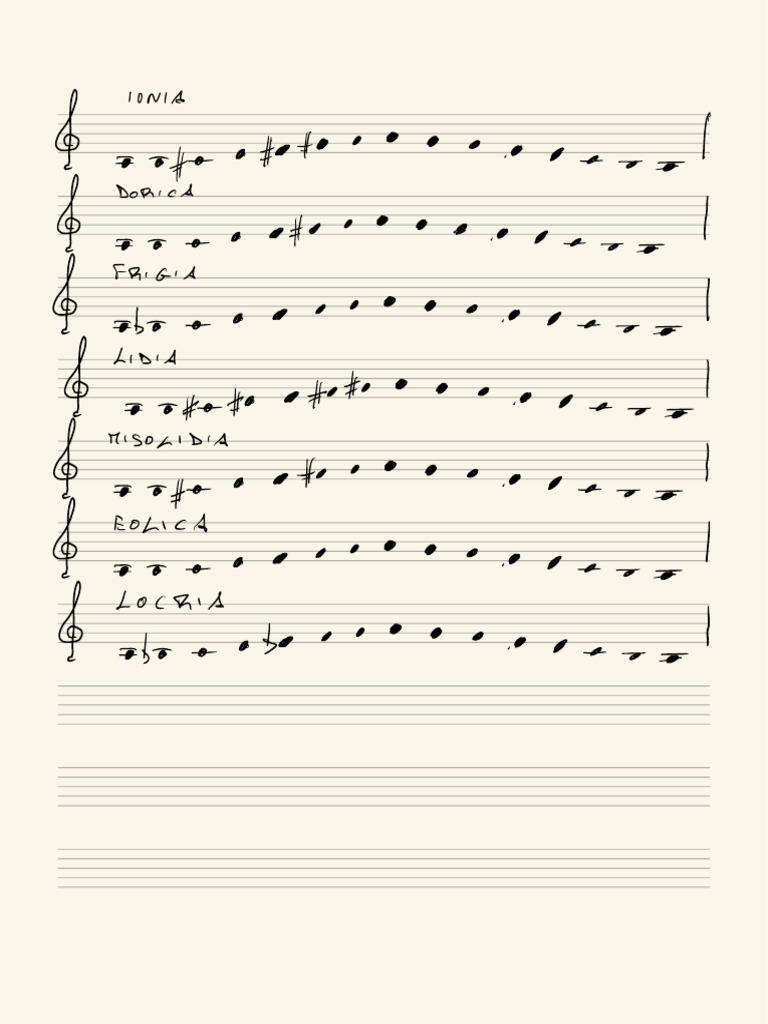 IONIA
DORICA
FRIGIA
LIDIA
MISOLIDIA
EOLICA
LOCRIA